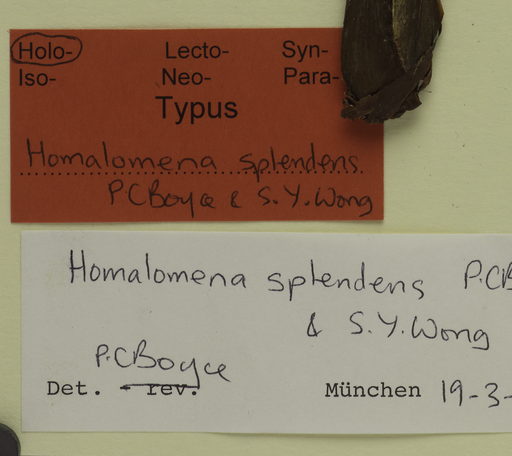 Holo- Lecto- Syn-
Iso- Neo- Para-
Typus
Homalomena splendens
P.C Boyce & S.Y. Wong
Homalomena splendens P.C B
& S.Y. Wong
P.C Boyce
Det. rev. München 19-3-